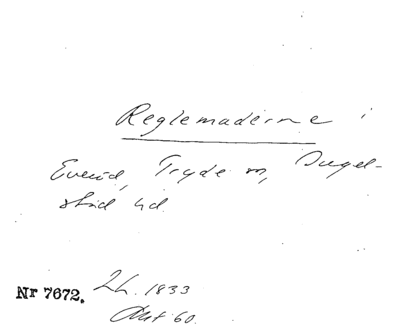 Reglemaderne i
Everöd, Tryde m, Ingel-
stad hd.
Nr 7672. Lh. 1833
Akt 60.